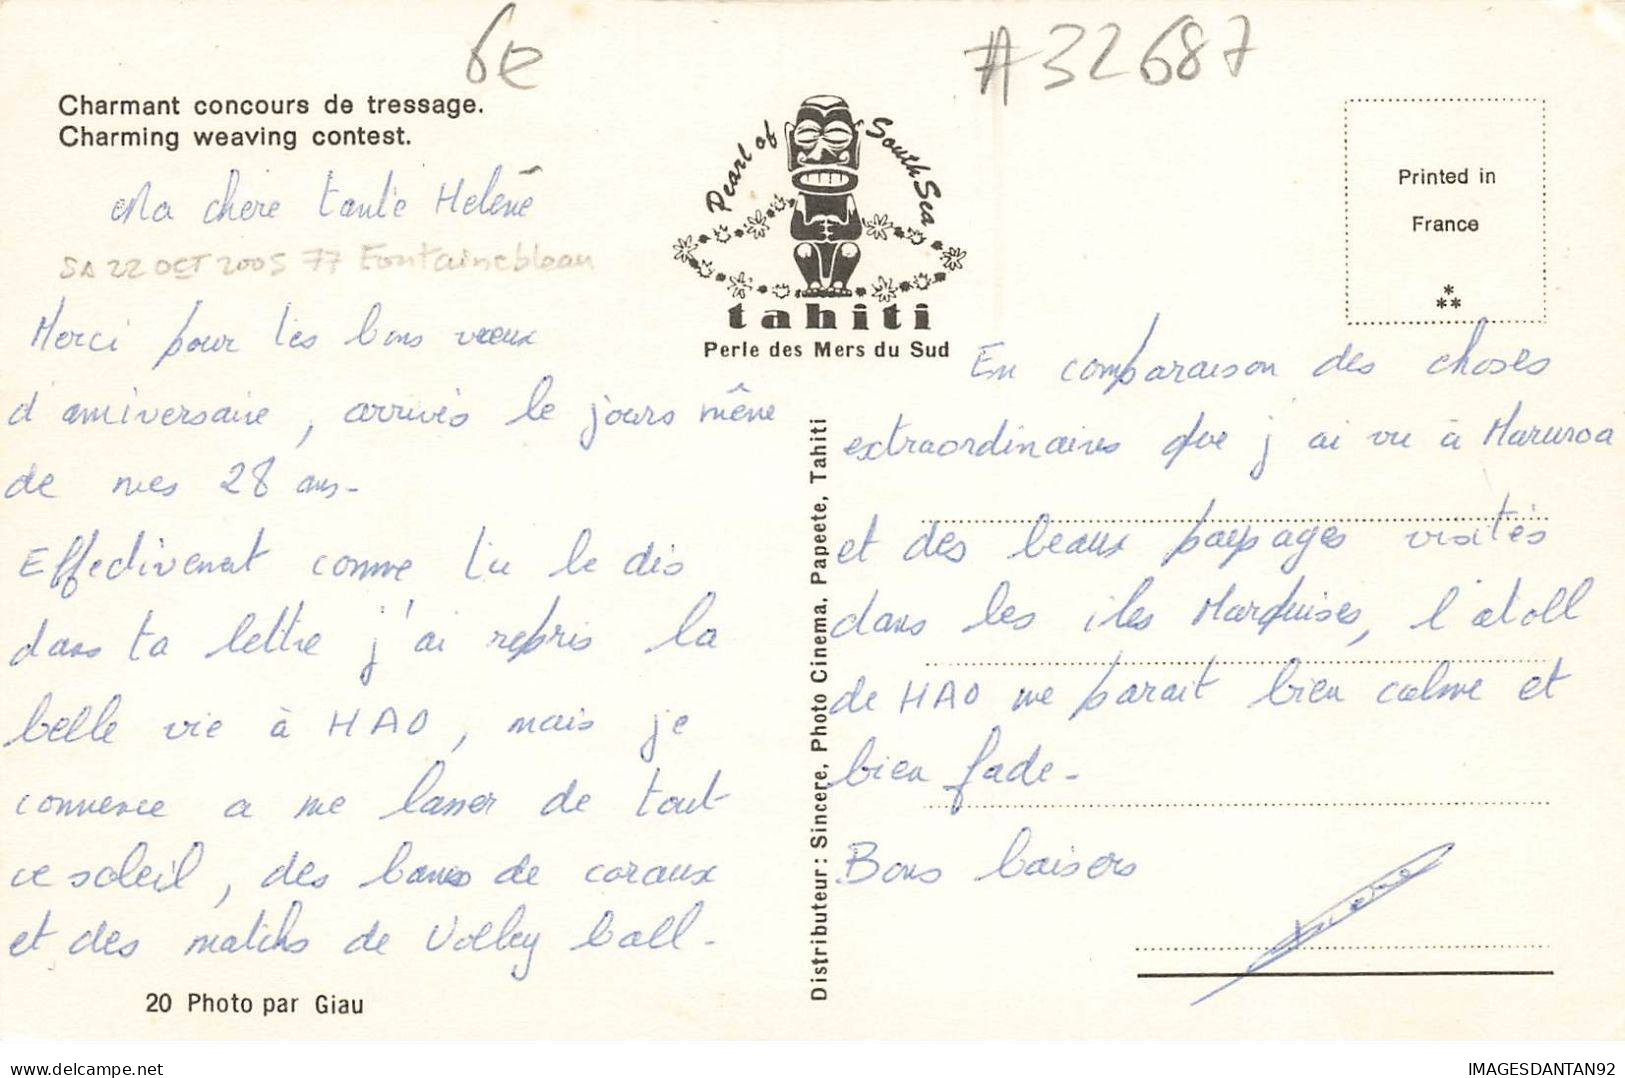 6e
#32687
Charmant concours de tressage.
Charming weaving contest.
Ma chère tante Helène
SA 22 OCT 2005 77 Fontainebleau
Merci pour tes bons vœux
d'anniversaire, arrivés le jours même
de mes 28 ans-
Effectivement comme tu le dis
dans ta lettre j'ai repris la
belle vie à HAO, mais je
commence a me lasser de tout
ce soleil, des bancs de coraux
et des matchs de Volley ball-
20 Photo par Giau
Pearl of South Sea
tahiti
Perle des Mers du Sud
Distributeur: Sincere, Photo Cinema, Papeete, Tahiti
Printed in
France
*
**
En comparaison des choses
extraordinaires que j'ai vu à Mururoa
et des beaux paysages visités
dans les iles Marquises, l'atoll
de HAO me parait bien calme et
bien fade-
Bons baisers
IMAGESDANTAN92